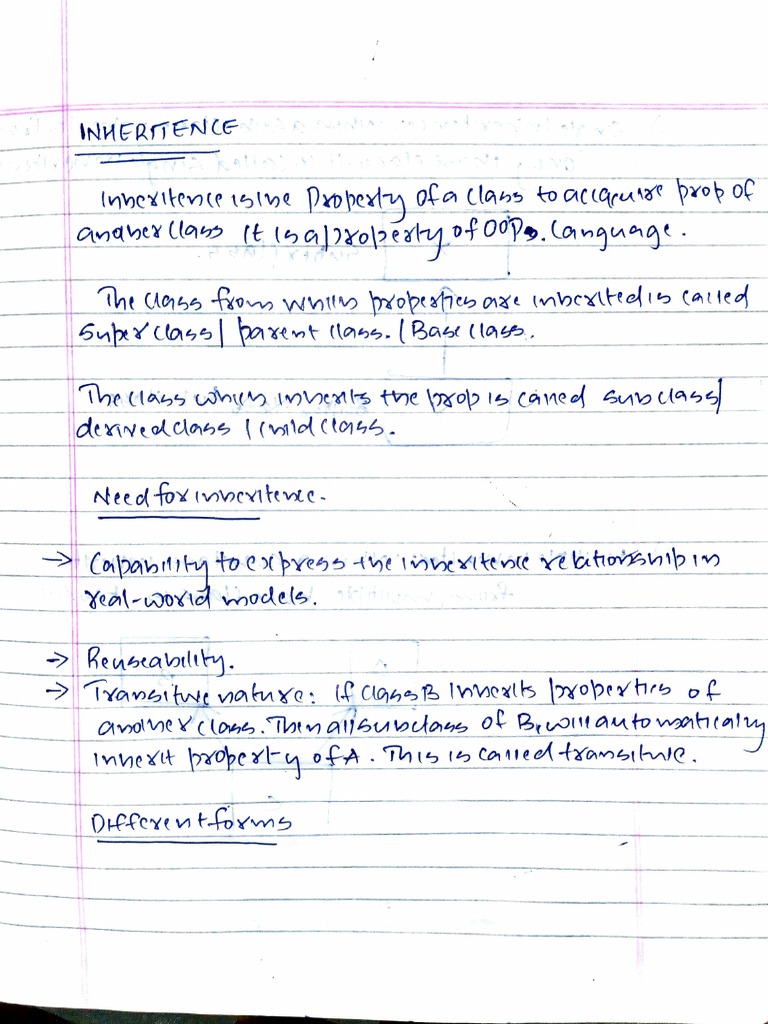 INHERITENCE
Inheritence is the Property of a class to accquire prop of
another class It is a property of OOPs. Language.
The class from which properties are inherited is called
Super class | parent class. | Base class.
The class which inherits the prop is called subclass|
derived class | child class.
Need for inheritence.
→ Capability to express the inheritence relationship in
real-world models.
→ Reuseability.
→ Transitive nature: If class B Inherits properties of
another class. Then all subclass of B, will automatically
inherit property of A. This is called transitive.
Different forms